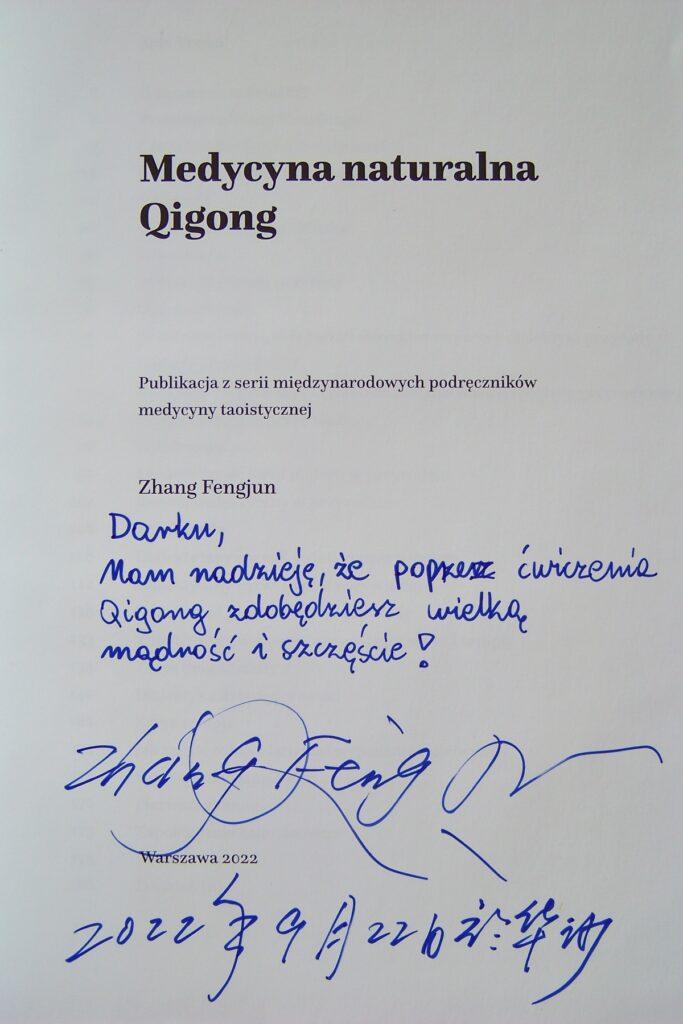 Medycyna naturalna
Qigong
Publikacja z serii międzynarodowych podręczników
medycyny taoistycznej
Zhang Fengjun
Darku,
Mam nadzieję, że poprzez ćwiczenia
Qigong zdobędziesz wielką
mądrość i szczęście!
Zhang Feng
Warszawa 2022
2022年9月22日於华沙